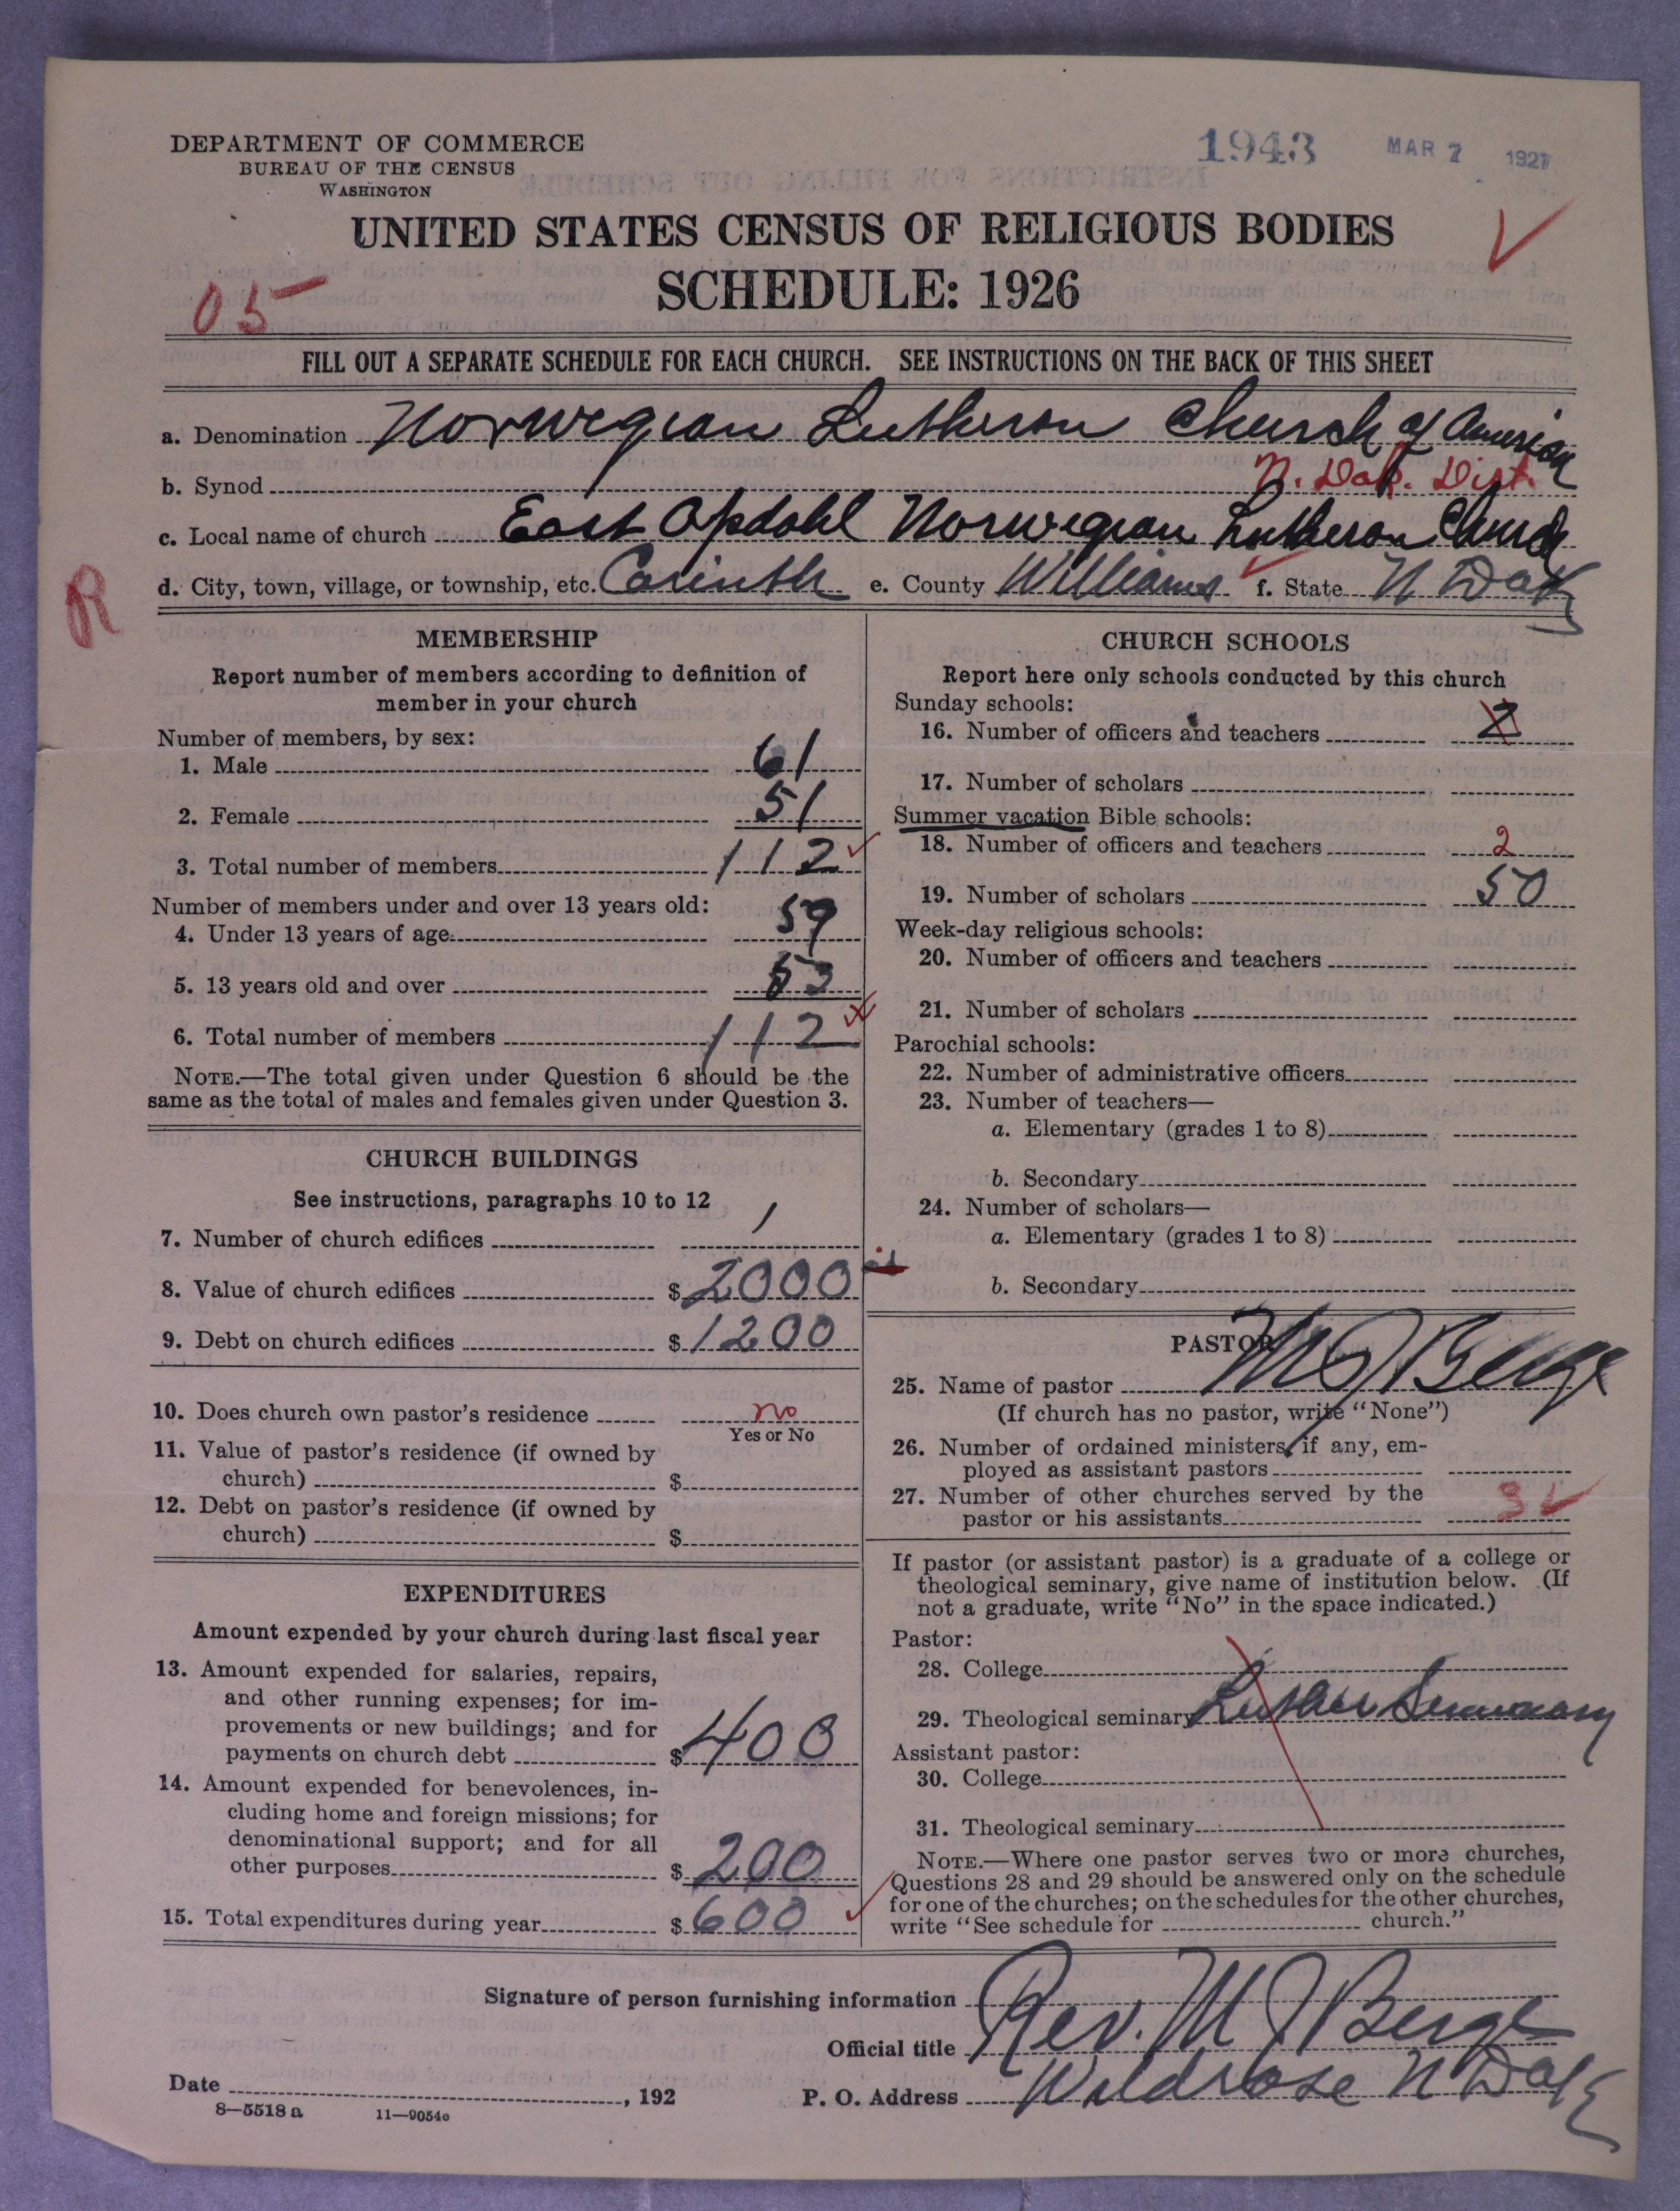 DEPARTMENT OF COMMERCE
BUREAU OF THE CENSUS
WASHINGTON
1943 MAR 7 1927
UNITED STATES CENSUS OF RELIGIOUS BODIES
SCHEDULE: 1926
05
FILL OUT A SEPARATE SCHEDULE FOR EACH CHURCH. SEE INSTRUCTIONS ON THE BACK OF THIS SHEET
a. Denomination Norwegian Lutheran Church of America
b. Synod N. Dak. Dist.
c. Local name of church East Opdahl Norwegian Lutheran Church
d. City, town, village, or township, etc. Corinth e. County Williams f. State N Dak
R
MEMBERSHIP
Report number of members according to definition of
member in your church
Number of members, by sex:
1. Male 61
2. Female 51
3. Total number of members 112
Number of members under and over 13 years old:
4. Under 13 years of age 59
5. 13 years old and over 53
6. Total number of members 112
NOTE.—The total given under Question 6 should be the
same as the total of males and females given under Question 3.
CHURCH BUILDINGS
See instructions, paragraphs 10 to 12
7. Number of church edifices 1
8. Value of church edifices $ 2000
9. Debt on church edifices $ 1200
10. Does church own pastor's residence no
Yes or No
11. Value of pastor's residence (if owned by
church) $
12. Debt on pastor's residence (if owned by
church) $
EXPENDITURES
Amount expended by your church during last fiscal year
13. Amount expended for salaries, repairs,
and other running expenses; for im-
provements or new buildings; and for
payments on church debt $ 400
14. Amount expended for benevolences, in-
cluding home and foreign missions; for
denominational support; and for all
other purposes $ 200
15. Total expenditures during year $ 600
CHURCH SCHOOLS
Report here only schools conducted by this church
Sunday schools:
16. Number of officers and teachers 2
17. Number of scholars
Summer vacation Bible schools:
18. Number of officers and teachers 2
19. Number of scholars 50
Week-day religious schools:
20. Number of officers and teachers
21. Number of scholars
Parochial schools:
22. Number of administrative officers
23. Number of teachers—
a. Elementary (grades 1 to 8)
b. Secondary
24. Number of scholars—
a. Elementary (grades 1 to 8)
b. Secondary
PASTOR
25. Name of pastor M J Berge
(If church has no pastor, write "None")
26. Number of ordained ministers, if any, em-
ployed as assistant pastors
27. Number of other churches served by the
pastor or his assistants 3
If pastor (or assistant pastor) is a graduate of a college or
theological seminary, give name of institution below. (If
not a graduate, write "No" in the space indicated.)
Pastor:
28. College
29. Theological seminary Luther Seminary
Assistant pastor:
30. College
31. Theological seminary
NOTE.—Where one pastor serves two or more churches,
Questions 28 and 29 should be answered only on the schedule
for one of the churches; on the schedules for the other churches,
write "See schedule for church."
Signature of person furnishing information Rev. M J Berge
Official title
Date , 192 P. O. Address Wildrose N Dak
8—5518 a 11—9054e